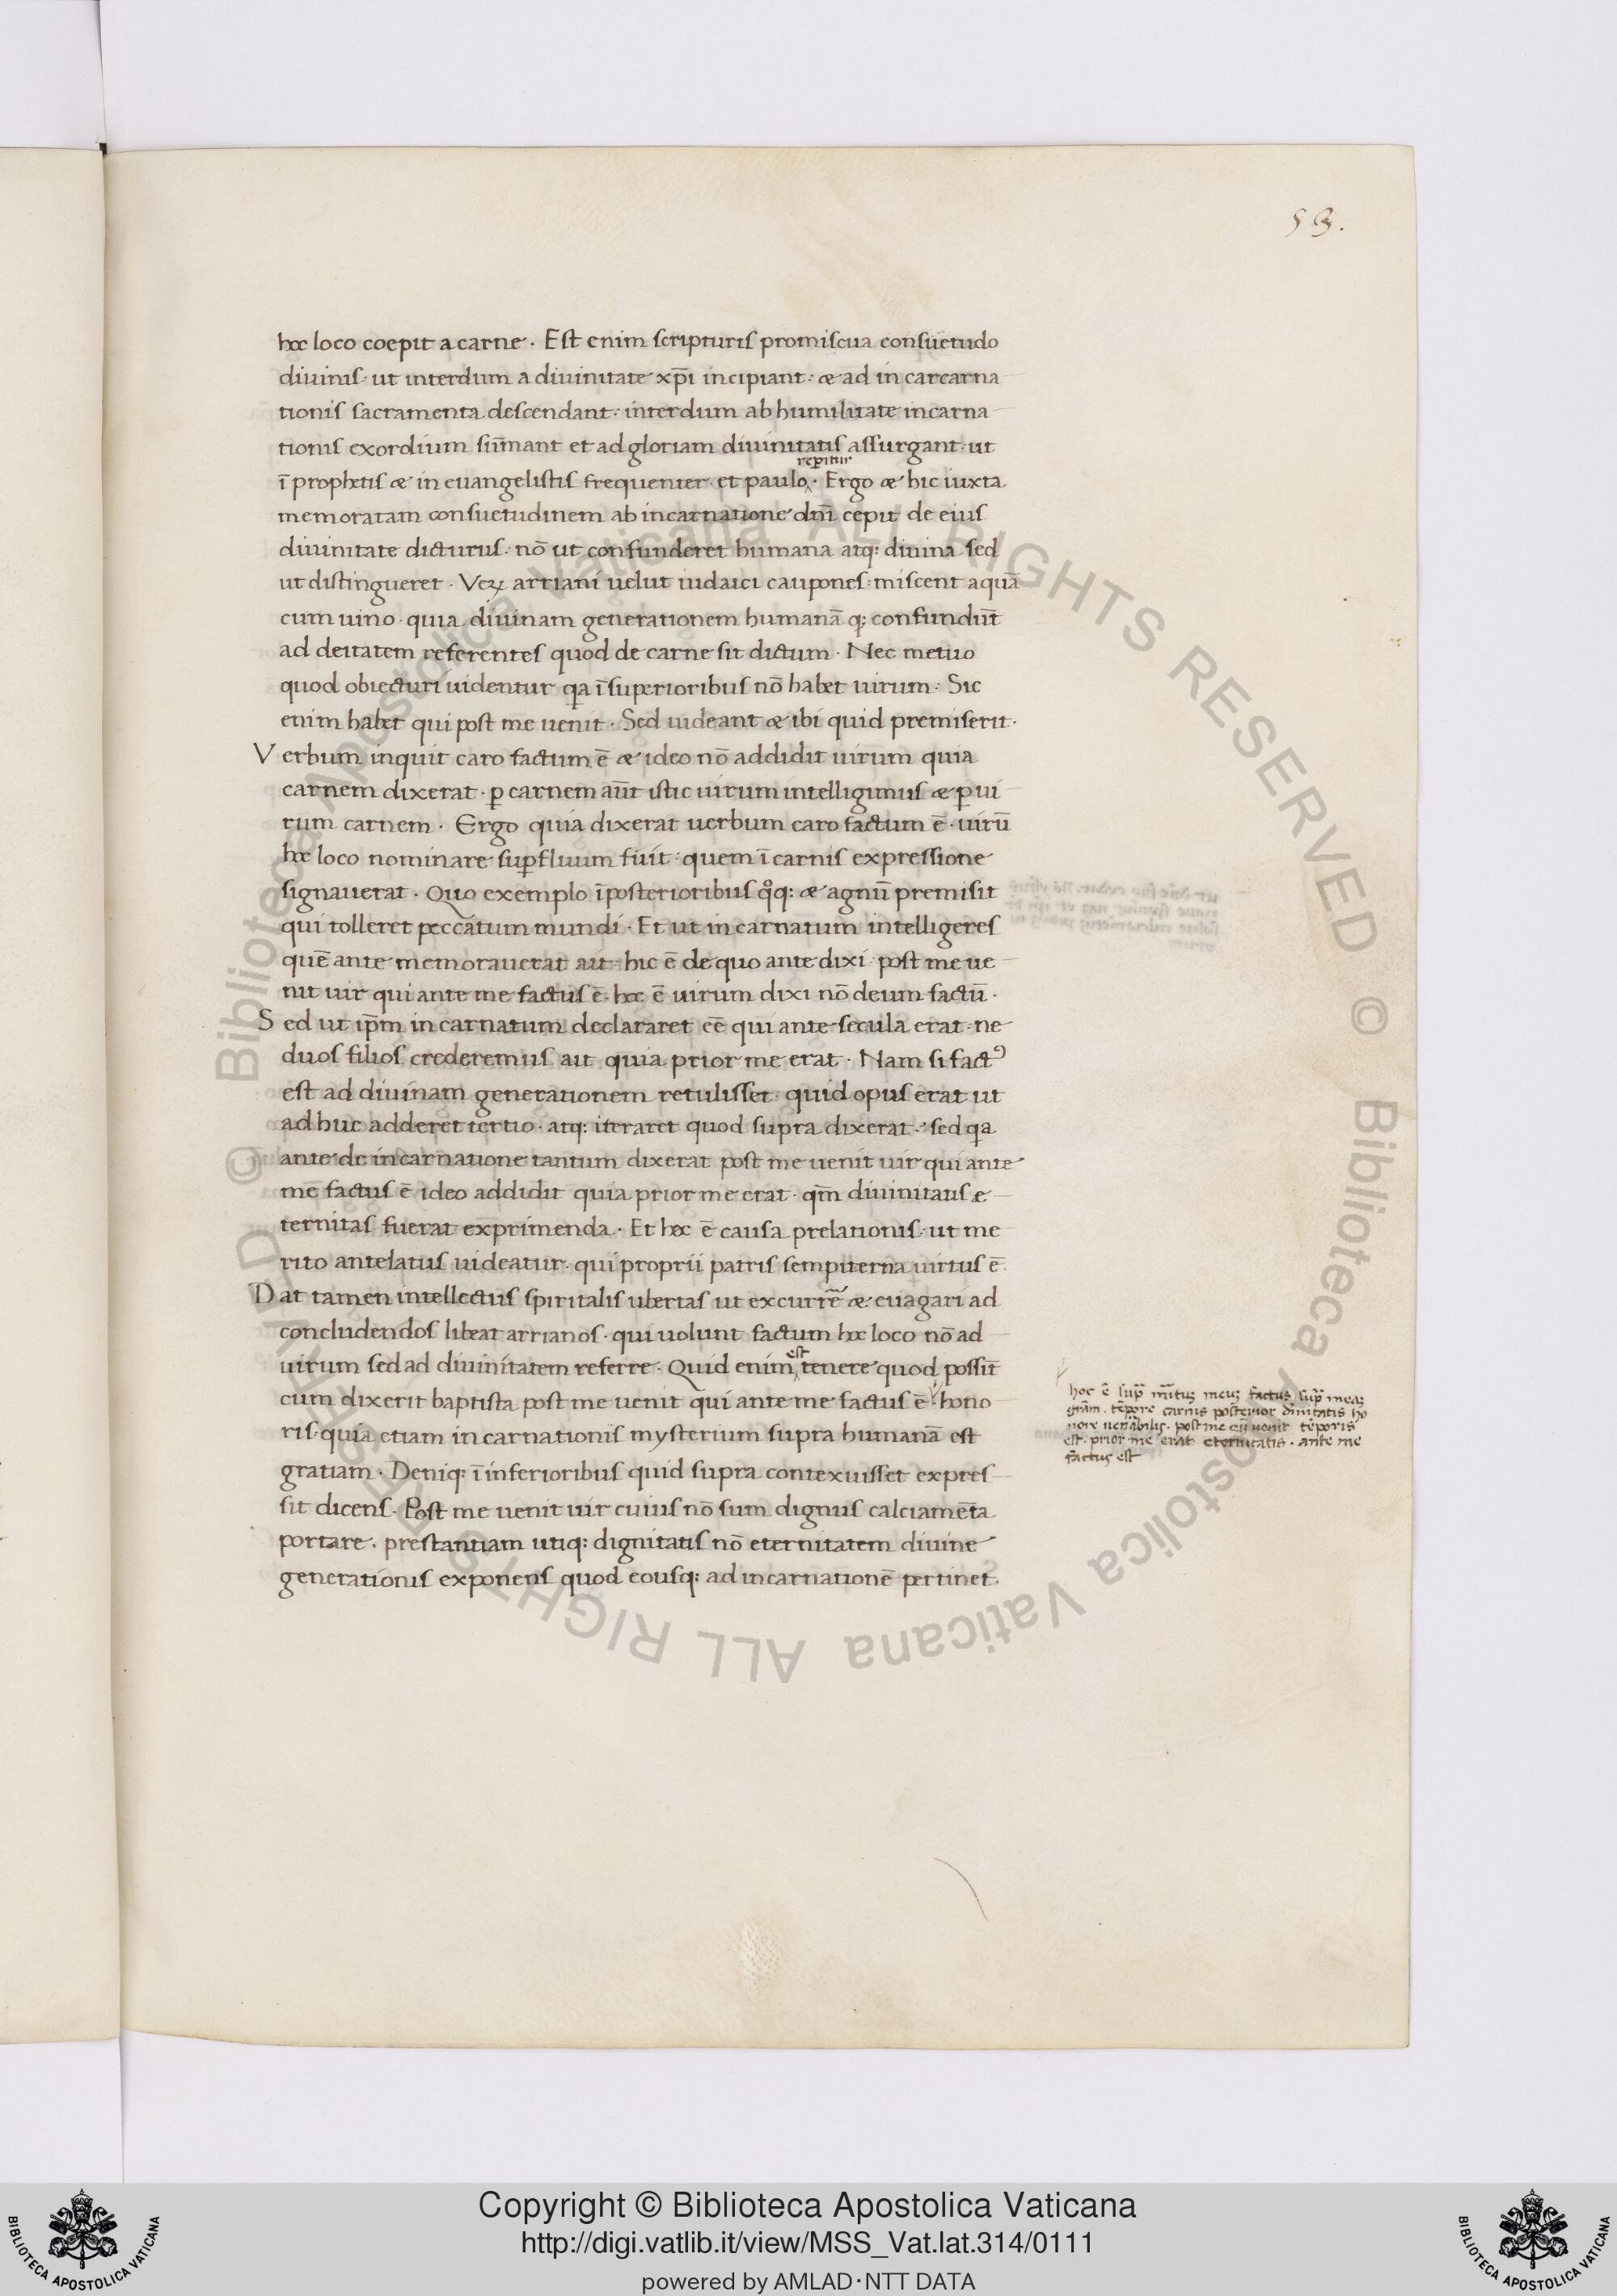 53.
hoc loco coepit a carne. Est enim scripturis promiscua consuetudo
diuinis· ut interdum a diuinitate xp̄i incipiant: & ad in carcarna
tionis sacramenta descendant: interdum ab humilitate incarna
tionis exordium sum̄ant et ad gloriam diuinitatis assurgant· ut
reperitur
ī prophetis & in euangelistis frequenter· et paulo· Ergo & hic iuxta
memoratam consuetudinem ab incarnatione dn̄i cepit de eius
diuinitate dicturus· nō ut confunderet humana atq: diuina sed
ut distingueret· Veꝝ arriani uelut iudaici caupones: miscent aquā
cum uino· quia diuinam generationem humanā q; confundūt
ad deitatem referentes quod de carne sit dictum· Nec metuo
quod obiecturi uidentur qa ī superioribus nō habet uirum: Sic
enim habet qui post me uenit· Sed uideant & ibi quid premiserit·
Verbum inquit caro factum ē & ideo nō addidit uirum quia
carnem dixerat· ꝑ carnem aūt istic uirum intelligimus & ꝑ ui
rum carnem· Ergo quia dixerat uerbum caro factum ē· uirū
hoc loco nominare suꝑfluum fuit: quem ī carnis expressione
signauerat· Quo exemplo ī posterioribus qͦq: & agnū premisit
qui tolleret peccatum mundi· Et ut in carnatum intelligeres
quē ante memorauerat ait· hic ē de quo ante dixi· post me ue
nit uir qui ante me factus ē· hoc ē uirum dixi nō deum factū·
Sed ut ip̄m in carnatum declararet eē qui ante secula erat· ne
duos filios crederemus ait quia prior me erat· Nam si factꝰ
est ad diuinam generationem retulisset· quid opus erat ut
ad huc adderet tertio· atq: iteraret quod supra dixerat: sed qa
ante de incarnatione tantum dixerat post me uenit uir qui ante
me factus ē ideo addidit quia prior me erat· qm̄ diuinitatis ę
ternitas fuerat exprimenda· Et hoc ē causa prelationis· ut me
rito antelatus uideatur· qui proprii patris sempiterna uirtus ē.
Dat tamen intellectus spiritalis ubertas ut excurrē & euagari ad
concludendos libeat arrianos· qui uolunt factum hoc loco nō ad
est
uirum sed ad diuinitatem referre· Quid enim tenere quod possit
cum dixerit baptista post me uenit qui ante me factus ē· hono
ris· quia etiam in carnationis mysterium supra humanā est
gratiam· Deniq: ī inferioribus quid supra contexuisset expres
sit dicens· Post me uenit uir cuius nō sum dignus calciamēta
portare· prestantiam utiq: dignitatis nō eternitatem diuine
generationis exponens quod eousq: ad incarnationē pertinet.
hoc ē supͣ meuȝ factus supͣ meaȝ
grām· tēpore carnis posterior diuinitatis ho
nore uenābilis· post me eiȝ uenit tēporis
est· prior me erat eternitatis· ante me
factus est
Copyright © Biblioteca Apostolica Vaticana
http://digi.vatlib.it/view/MSS_Vat.lat.314/0111
powered by AMLAD·NTT DATA
BIBLIOTECA APOSTOLICA VATICANA
BIBLIOTECA APOSTOLICA VATICANA
© Biblioteca Apostolica Vaticana ALL RIGHTS RESERVED
© Biblioteca Apostolica Vaticana ALL RIGHTS RESERVED